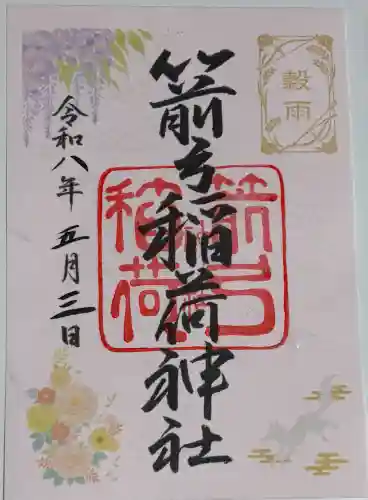 穀雨
箭弓稲荷神社
箭弓稲荷
令和八年 五月三日